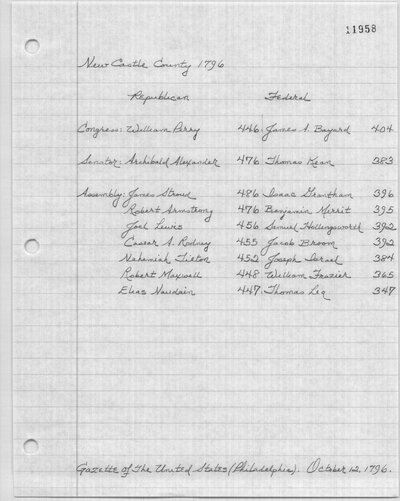 11958
New Castle County 1796
Republican Federal
Congress: William Perry 446. James A. Bayard 404
Senator: Archibald Alexander 476 Thomas Kean 383
Assembly: James Stroud 486 Isaac Grantham 396
Robert Armstrong 476 Benjamin Merrit 395
Joel Lewis 456 Samuel Hollingsworth 392
Caesar A. Rodney 455 Jacob Broom 392
Nehemiah Tilton 452 Joseph Israel 384
Robert Maxwell 448 William Frazier 365
Elias Naudain 447. Thomas Lea 347
Gazette of the United States (Philadelphia). October 12, 1796.